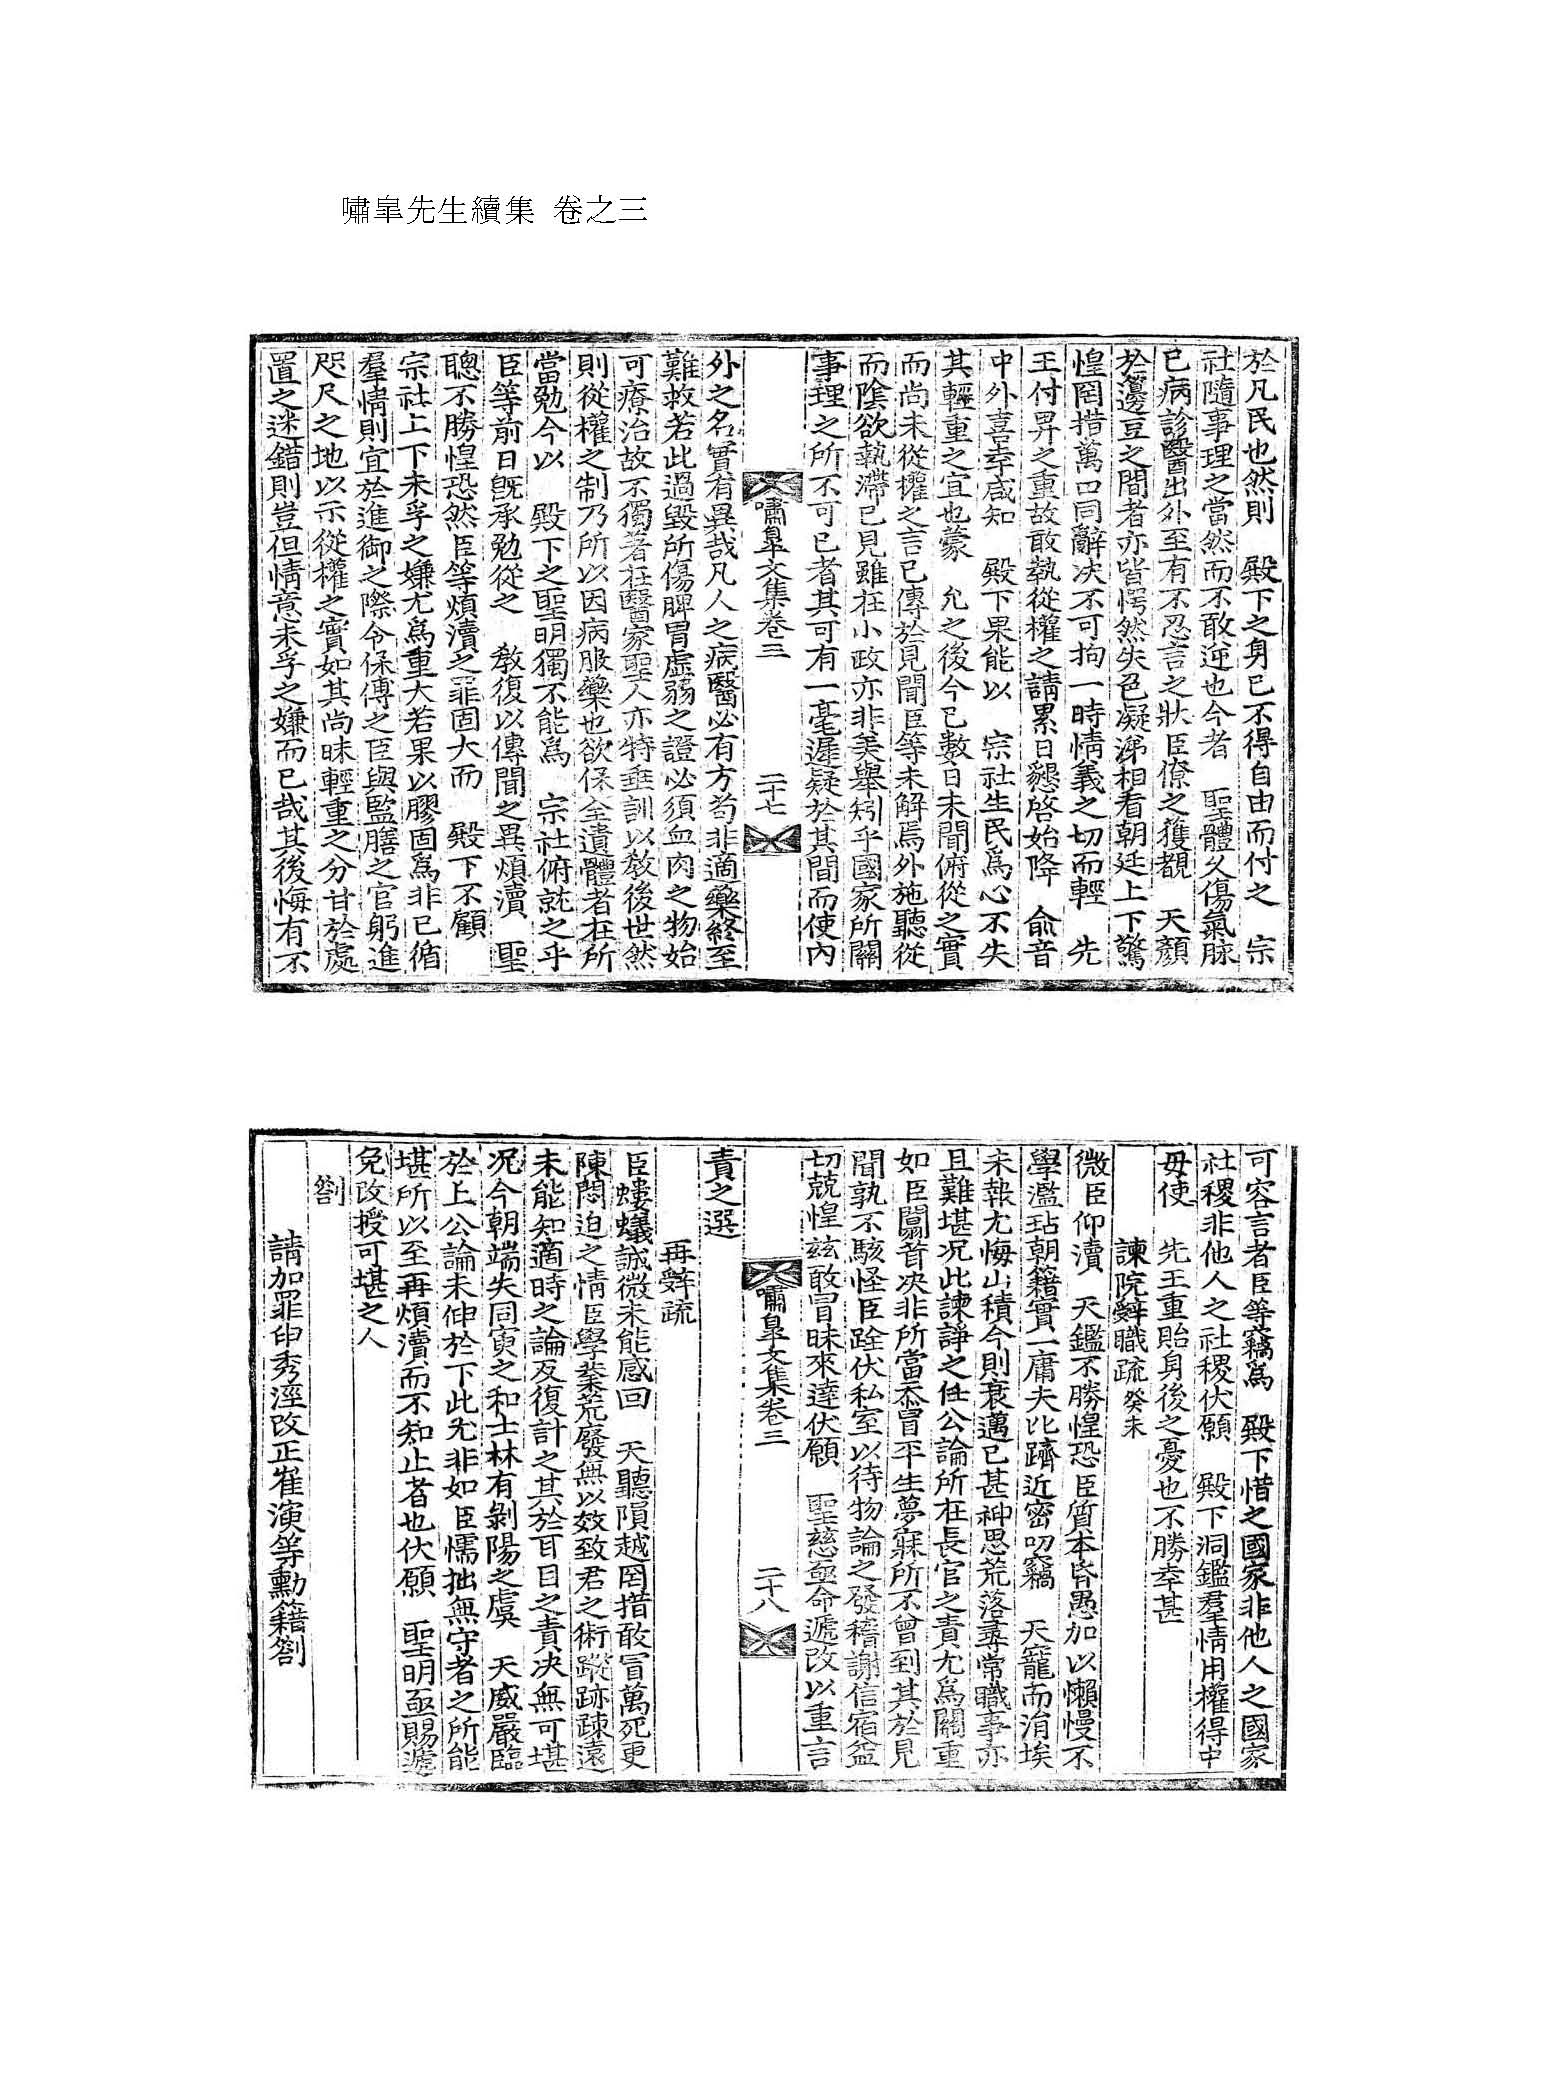 嘯皐先生續集 卷之三
於凡民也然則 殿下之身已不得自由而付之 宗
社隨事理之當然而不敢逆也今者 聖體久傷氣脉
已病診醫出外至有不忍言之狀臣僚之獲覩 天顔
於籩豆之間者亦皆愕然失色凝涕相看朝廷上下驚
惶罔措萬口同辭决不可拘一時情義之切而輕 先
王付畀之重故敢執從權之請累日懇啓始降 兪音
中外喜幸咸知 殿下果能以 宗社生民爲心不失
其輕重之宜也蒙 允之後今已數日未聞俯從之實
而尚未從權之言已傳於見聞臣等未解焉外施聽從
而陰欲執滯已見雖在小政亦非美舉矧乎國家所關
事理之所不可已者其可有一毫遲疑於其間而使内
嘯皐文集卷三 二十七
外之名實有異哉凡人之病醫必有方苟非適藥終至
難救若此過毁所傷脾胃虛弱之證必須血肉之物始
可療治故不獨著在醫家聖人亦特垂訓以敎後世然
則從權之制乃所以因病服藥也欲保全遺體者在所
當勉今以 殿下之聖明獨不能爲 宗社俯就之乎
臣等前日旣承勉從之 敎復以傳聞之異煩瀆 聖
聰不勝惶恐然臣等煩瀆之罪固大而 殿下不顧
宗社上下未孚之嫌尤爲重大若果以膠固爲非已循
羣情則宜於進御之際令保傅之臣與監膳之官躬進
咫尺之地以示從權之實如其尚昧輕重之分甘於處
置之迷錯則豈但情意未孚之嫌而已哉其後悔有不
可容言者臣等竊爲 殿下惜之國家非他人之國家
社稷非他人之社稷伏願 殿下洞鑑羣情用權得中
毋使 先王重貽身後之憂也不勝幸甚
諫院辭職疏癸未
微臣仰瀆 天鑑不勝惶恐臣質本皆愚加以懶慢不
學濫玷朝籍實一庸夫比躋近密叨竊 天寵而涓埃
未報尤悔山積今則衰邁已甚神思荒落尋常職事亦
且難堪况此諫諍之任公論所在長官之責尤爲關重
如臣闒茸决非所當忝冒平生夢寐所不曾到其於見
聞孰不駭怪臣跧伏私室以待物論之發稽謝信宿益
切兢惶玆敢冒昧來達伏願 聖慈亟命遞改以重言
嘯皐文集卷三 二十八
責之選
再辭疏
臣螻蟻誠微未能感回 天聽隕越罔措敢冒萬死更
陳悶迫之情臣學業荒廢無以效致君之術蹤跡踈遠
未能知適時之論反復計之其於耳目之責决無可堪
况今朝端失同寅之和士林有剝陽之虞 天威嚴臨
於上公論未伸於下此尤非如臣懦拙無守者之所能
堪所以至再煩瀆而不知止者也伏願 聖明亟賜遞
免改授可堪之人
劄
請加罪印秀涇改正崔演等勳籍劄